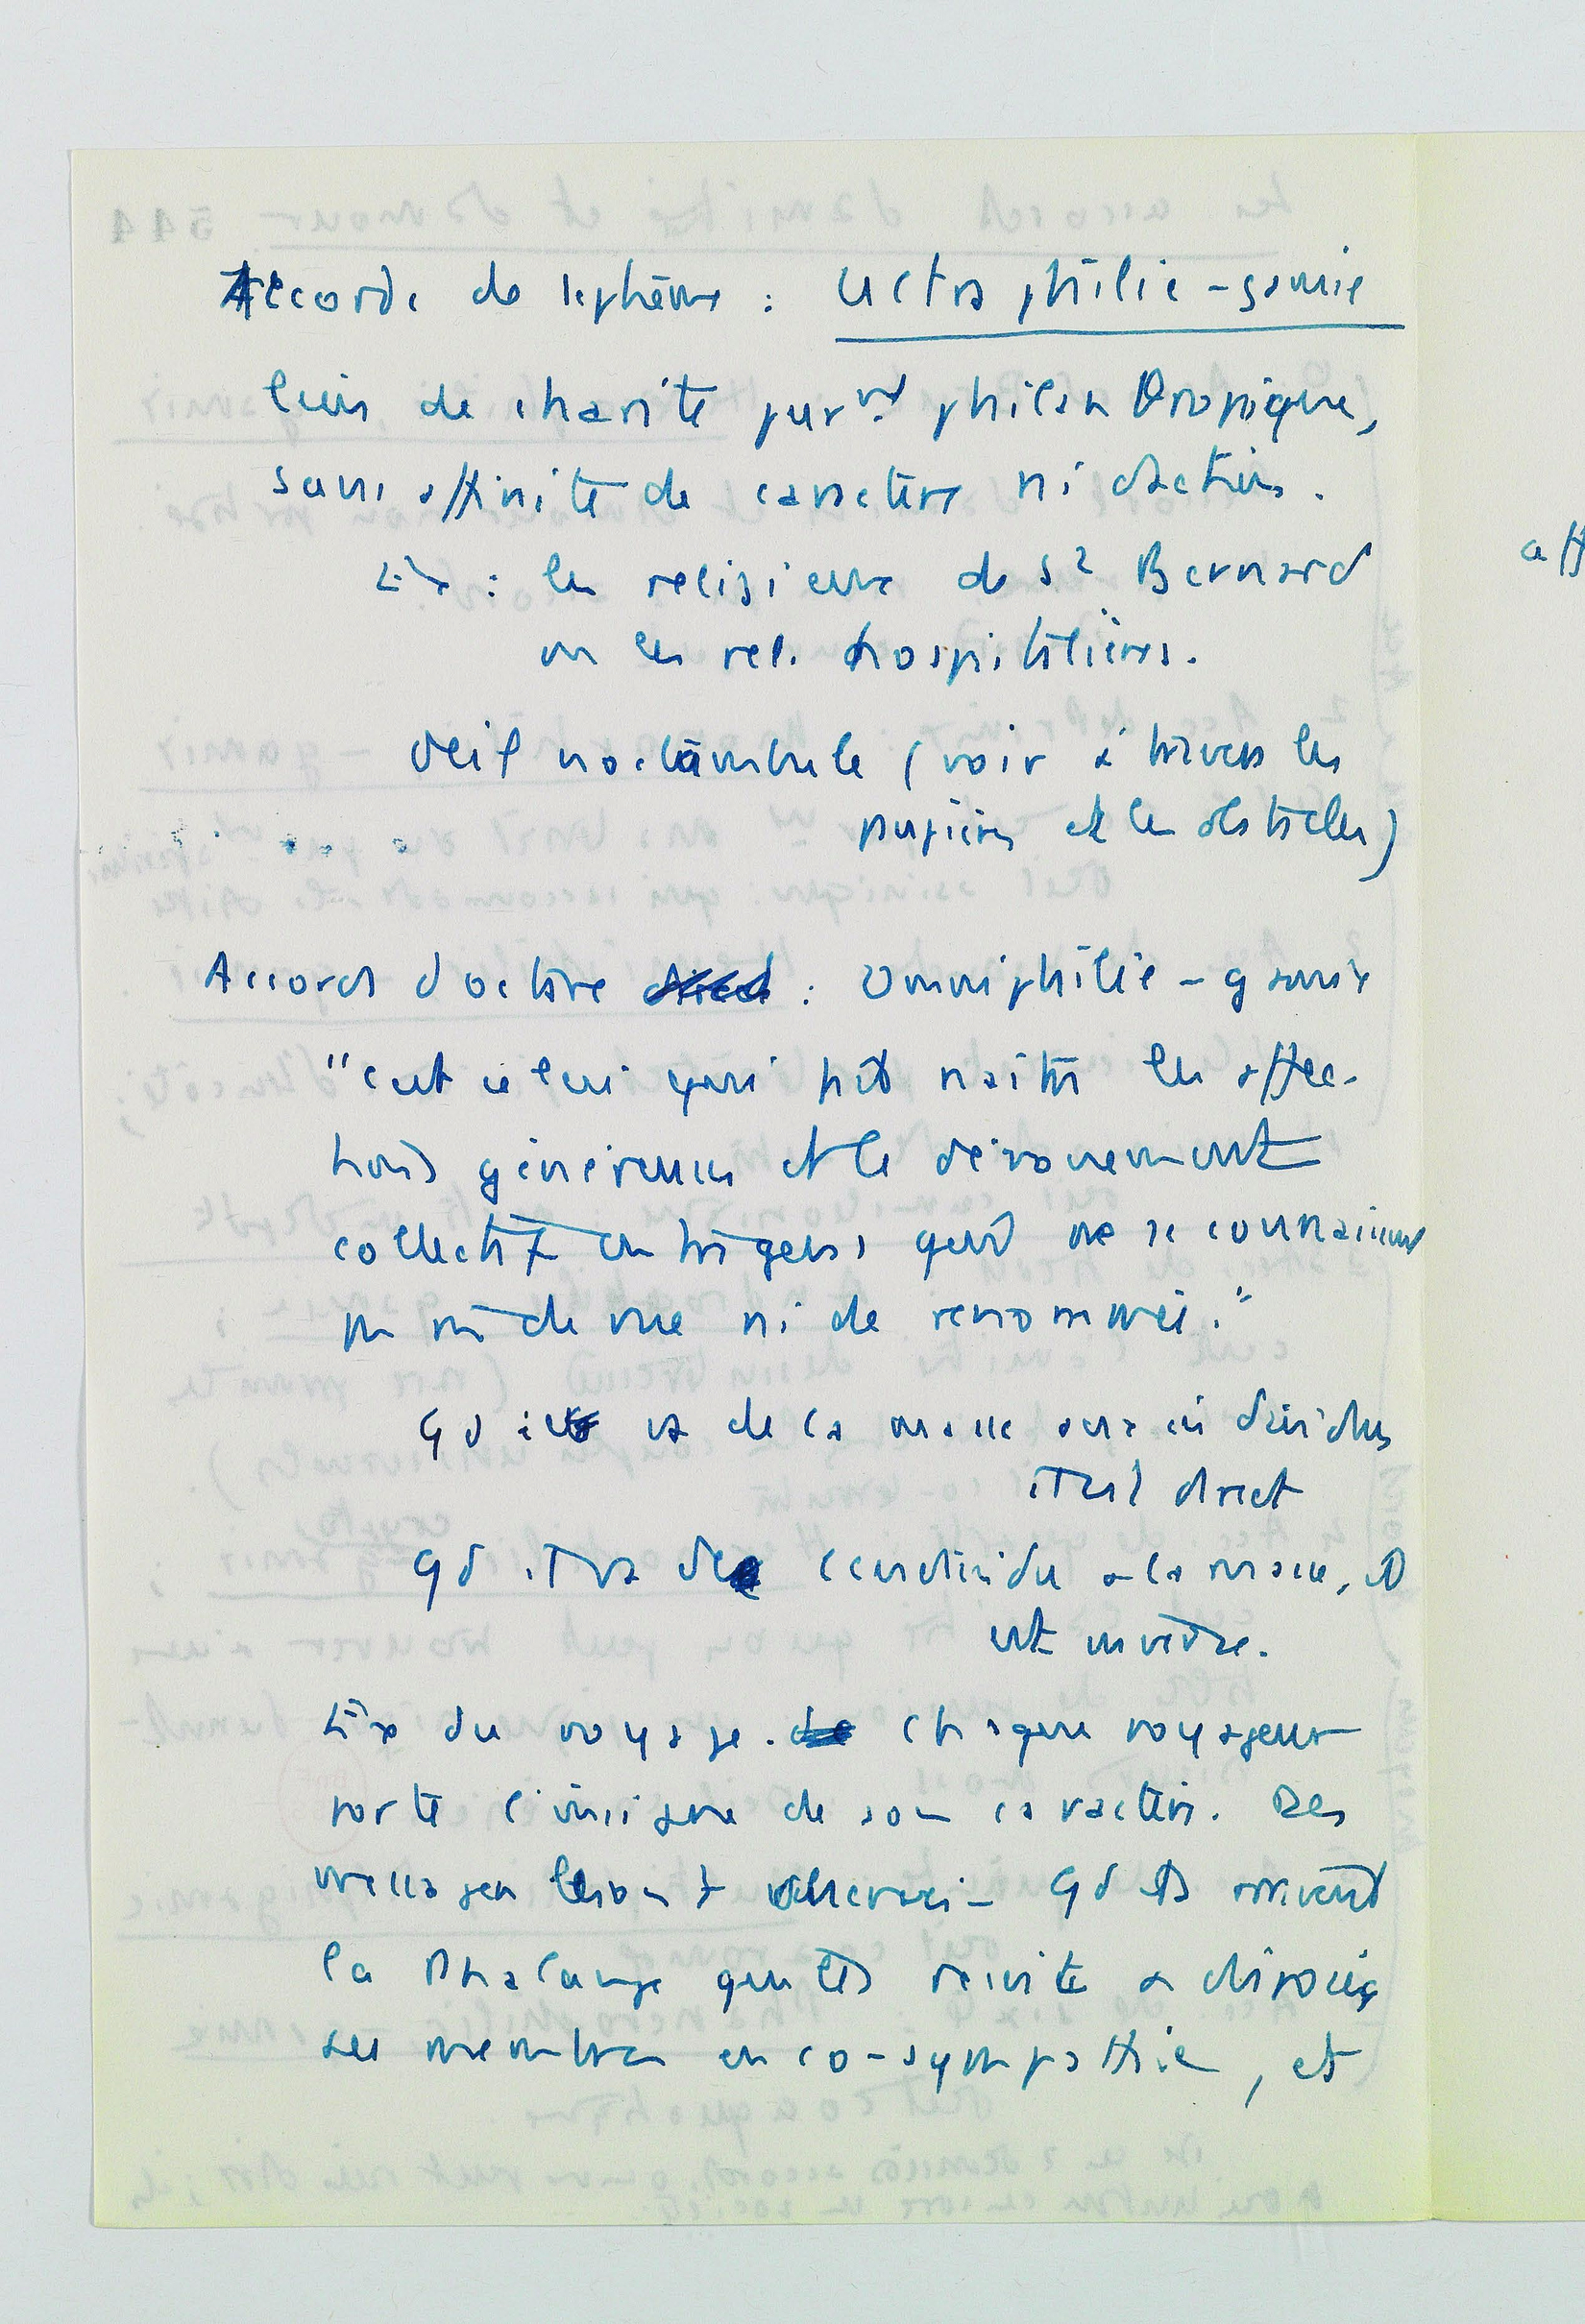 Accords de septième : Ultra philie-gamie
liens de charité purnt philanthropique,
sans affinité de caractère ni d'action.
Ex : les religieux de St Bernard
ou les rel. hospitalières.
Oeil noctambule (voir à travers les
paupières et les obstacles)
Accord d'octave : Omniphilie-gamie
"c'est celui qui fait naître les affec-
tions généreuses et le dévouement
collectif entre gens qui ne se connaissent
pas ni de vue ni de renommée."
Qd il va de la masse aux individus
il est direct
Qd il va de l'individu à la masse, il
est inverse.
Ex du voyage. Chaque voyageur
porte l'insigne de son caractère. Des
messagers Qd ils arrivent
la Phalange qu'ils visite a disposé
ses membres en co-sympathie, et
aff